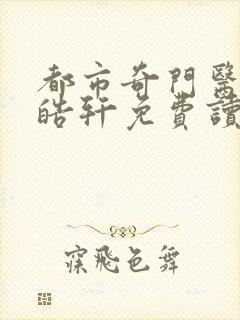 都市奇門醫
皓軒免費讀
寐飛色舞